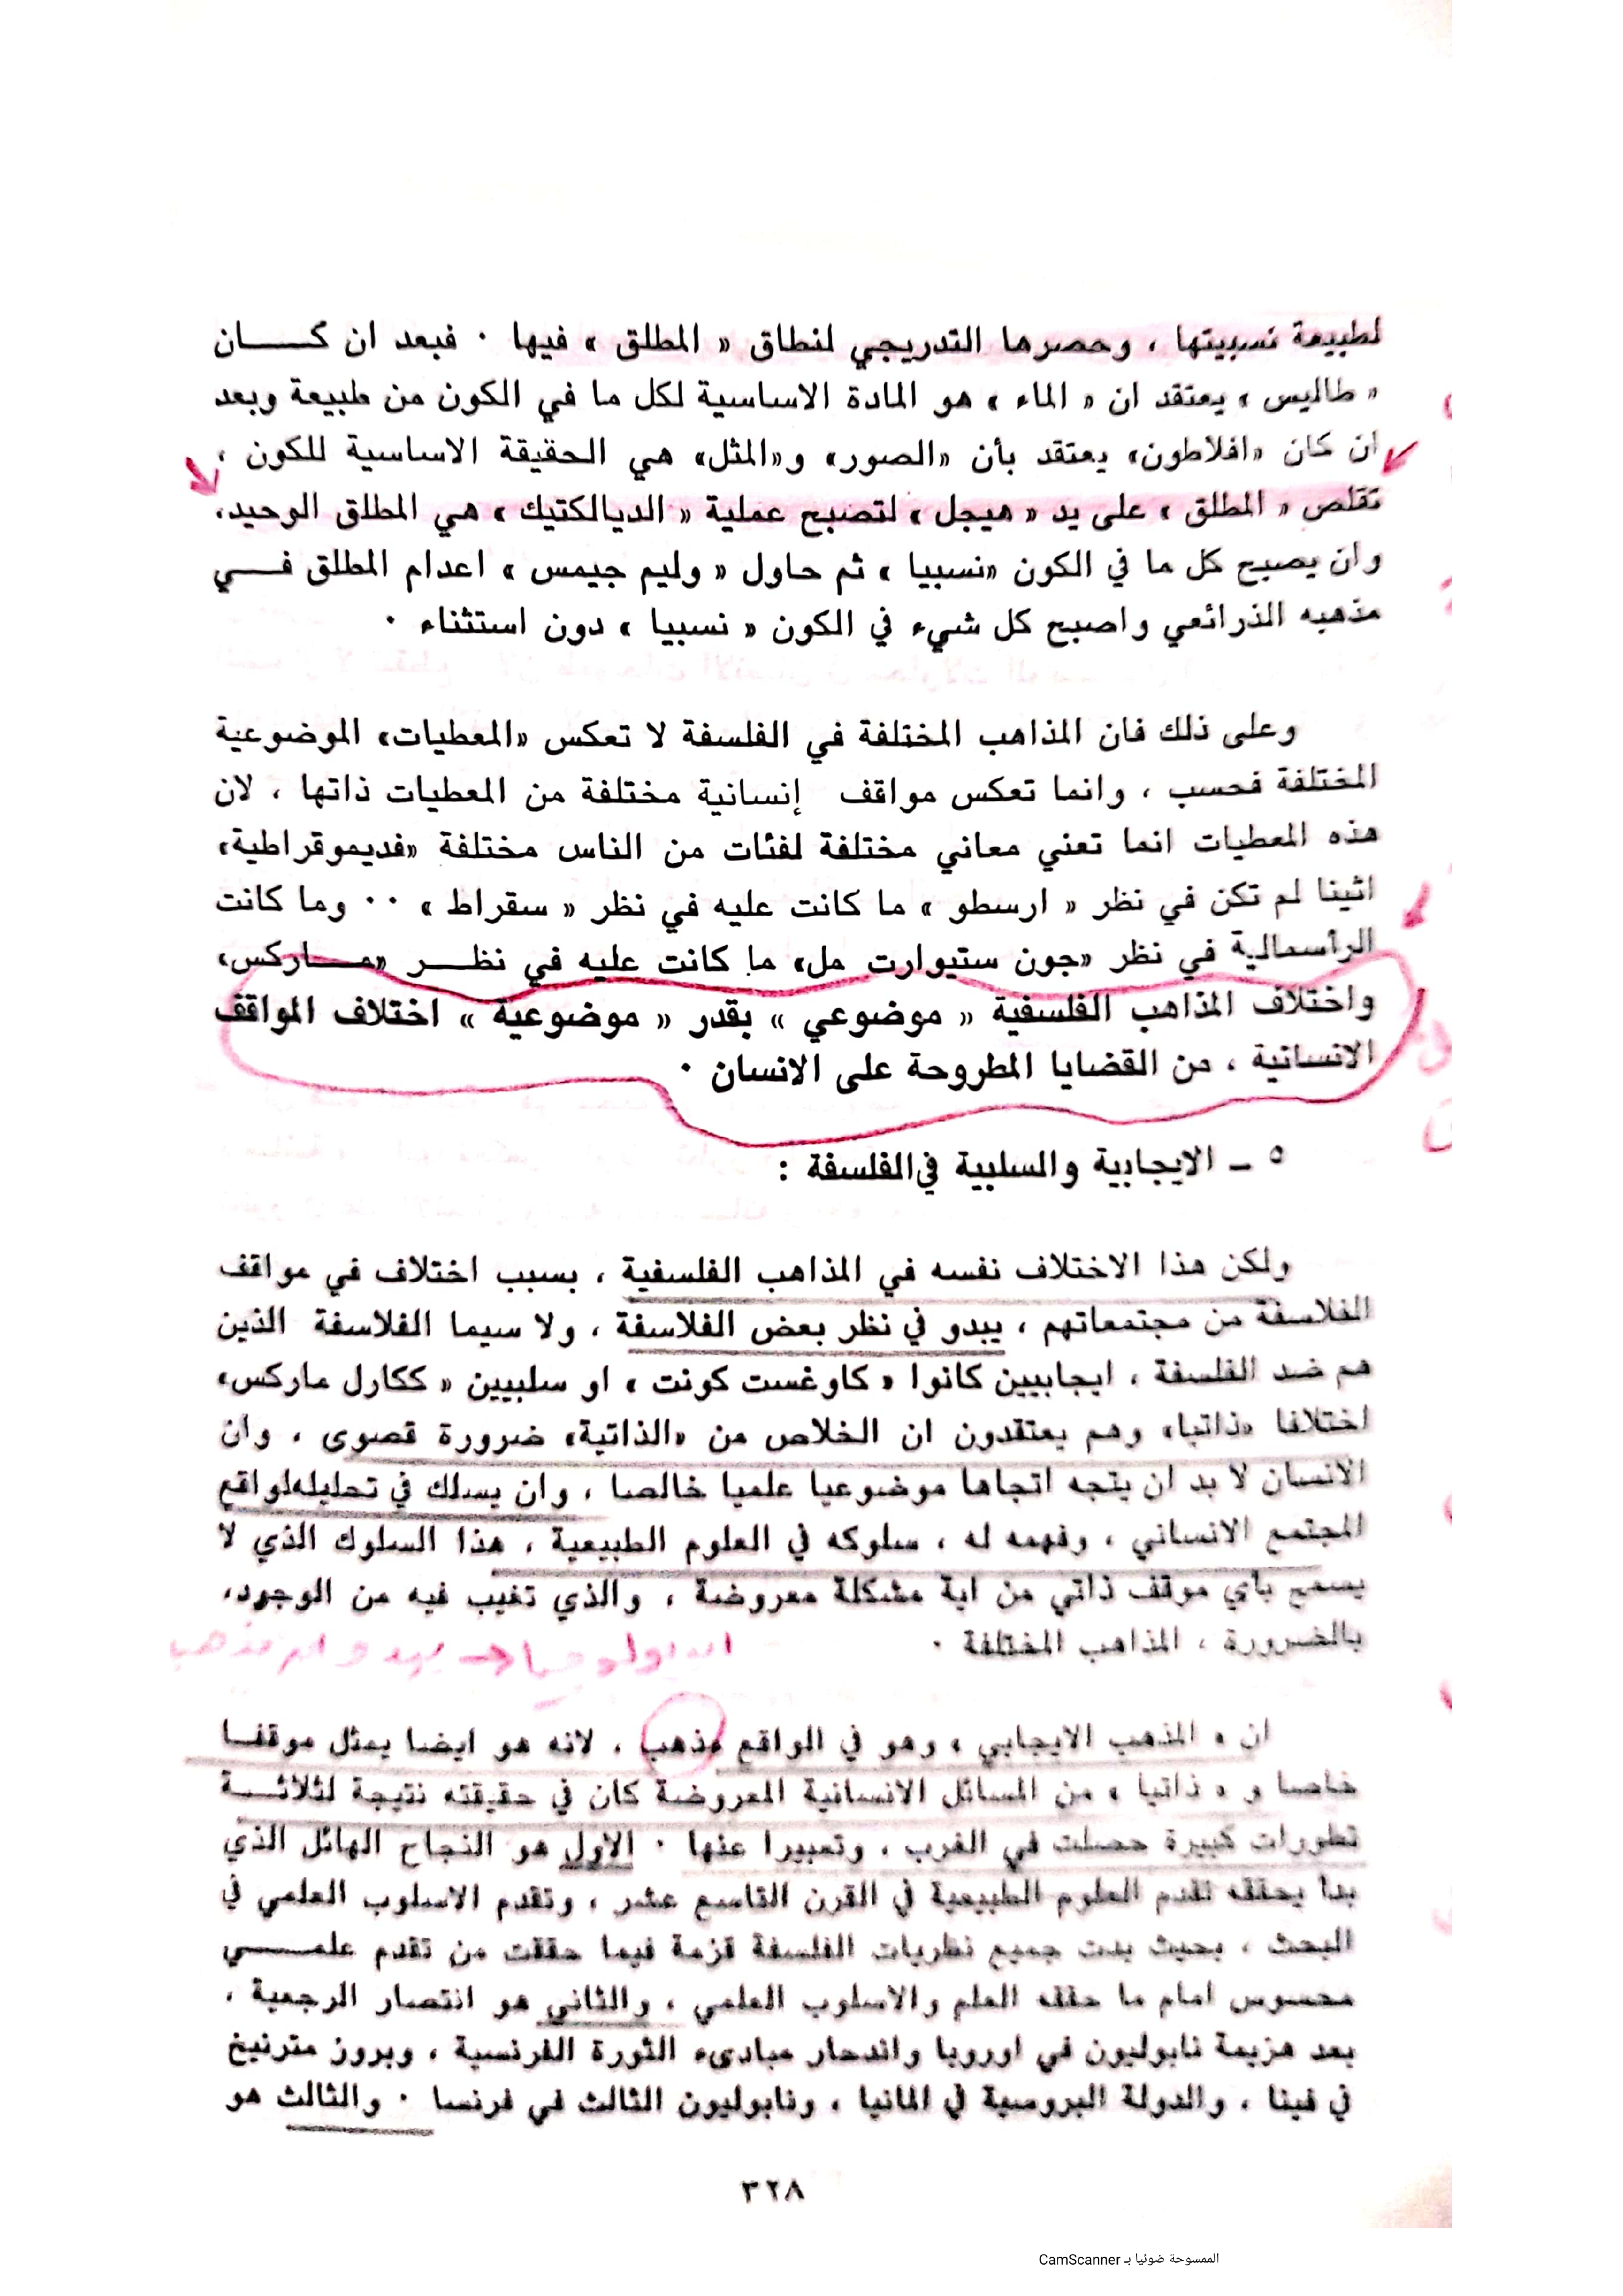 لطبيعة نسبيتها ، وحصرها التدريجي لنطاق « المطلق » فيها ٠ فبعد ان كـــــان
« طاليس » يعتقد ان « الماء » هو المادة الاساسية لكل ما في الكون من طبيعة وبعد
ان كان «افلاطون» يعتقد بأن «الصور» و«المثل» هي الحقيقة الاساسية للكون ،
تقلص « المطلق » على يد « هيجل » لتصبح عملية « الديالكتيك » هي المطلق الوحيد،
وان يصبح كل ما في الكون «نسبيا » ثم حاول « وليم جيمس » اعدام المطلق فـــي
مذهبه الذرائعي واصبح كل شيء في الكون « نسبيا » دون استثناء ٠
وعلى ذلك فان المذاهب المختلفة في الفلسفة لا تعكس «المعطيات» الموضوعية
المختلفة فحسب ، وانما تعكس مواقف إنسانية مختلفة من المعطيات ذاتها ، لان
هذه المعطيات انما تعني معاني مختلفة لفئات من الناس مختلفة «فديموقراطية»
اثينا لم تكن في نظر « ارسطو » ما كانت عليه في نظر « سقراط » ٠٠ وما كانت
الرأسمالية في نظر «جون ستيوارت مل» ما كانت عليه في نظـــر «مـــاركس»
واختلاف المذاهب الفلسفية « موضوعي » بقدر « موضوعية » اختلاف المواقف
الانسانية ، من القضايا المطروحة على الانسان ٠
٥ ـ الايجابية والسلبية في الفلسفة :
ولكن هذا الاختلاف نفسه في المذاهب الفلسفية ، بسبب اختلاف في مواقف
الفلاسفة من مجتمعاتهم ، يبدو في نظر بعض الفلاسفة ، ولا سيما الفلاسفة الذين
هم ضد الفلسفة ، ايجابيين كانوا « كاوغست كونت » او سلبيين « ككارل ماركس»
اختلافا «ذاتيا» وهم يعتقدون ان الخلاص من «الذاتية» ضرورة قصوى ، وان
الانسان لا بد ان يتجه اتجاها موضوعيا علميا خالصا ، وان يسلك في تحليله لواقع
المجتمع الانساني ، وفهمه له ، سلوكه في العلوم الطبيعية ، هذا السلوك الذي لا
يسمح بأي موقف ذاتي من اية مشكلة معروضة ، والذي تغيب فيه من الوجود،
بالضرورة ، المذاهب المختلفة ٠
ايديولوجيا
ان « المذهب الايجابي » وهو في الواقع مذهب ، لانه هو ايضا يمثل موقفــا
خاصا و « ذاتيا » من المسائل الانسانية المعروضة كان في حقيقته نتيجة لثلاثـــة
تطورات كبيرة حصلت في الغرب ، وتعبيرا عنها ٠ الاول هو النجاح الهائل الذي
بدأ يحققه تقدم العلوم الطبيعية في القرن التاسع عشر ، وتقدم الاسلوب العلمي في
البحث ، بحيث بدت جميع نظريات الفلسفة قزمة فيما حققت من تقدم علمـــــي
محسوس امام ما حققه العلم والاسلوب العلمي ، والثاني هو انتصار الرجعية ،
بعد هزيمة نابوليون في اوروبا واندحار مبادىء الثورة الفرنسية ، وبروز مترنيخ
في فينا ، والدولة البروسية في المانيا ، ونابوليون الثالث في فرنسا ٠ والثالث هو
٣٢٨
الممسوحة ضوئيا بـ CamScanner